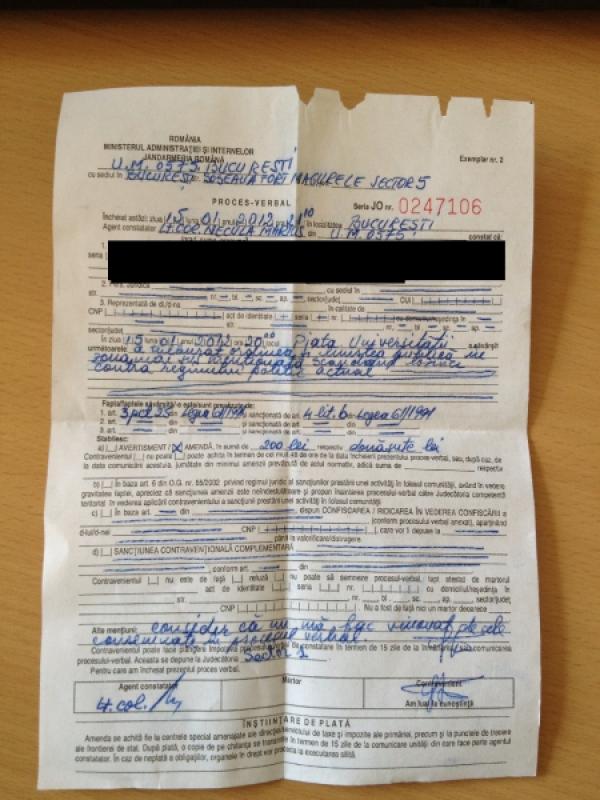 ROMÂNIA
MINISTERUL ADMINISTRAŢIEI ŞI INTERNELOR
JANDARMERIA ROMÂNĂ
Exemplar nr. 2
U.M. 0575 BUCUREŞTI
cu sediul în BUCUREŞTI ŞOSEAUA FORT MAGURELE SECTOR 5
PROCES-VERBAL
Seria JO nr. 0247106
Încheiat astăzi: ziua 15 luna 01 anul 2012 în localitatea BUCUREŞTI
Agent constatator LT. COL. NECULA MARIUS din U.M. 0575 constat că:
1.
seria
2. Pers. Juridică cu sediul în
str. nr. bl. sc. ap. sector/judeţ CUI
3. Reprezentată de dl./d-na în calitate de
CNP act de identitate seria nr. cu domiciliul/reşedinţa în
sector/judeţ str. nr. bl. sc. ap.
În ziua 15 luna 01 2012 ora 20 00 locul Piaţa Universităţii a săvârşit
următoarele: a tulburat ordinea şi liniştea publică
scandând lozinci
contra regimului politic actual
Fapta/faptele săvârşită/e este/sunt prevăzute de:
1. art. 3 pct 25 din Legea 61/1991 şi sancţionată de art. 4 lit. b Legea 61/1991
2. art. din şi sancţionată de art. din
3. art. din şi sancţionată de art. din
Stabilesc:
a) AVERTISMENT / X AMENDĂ, în sumă de 200 lei respectiv două sute lei
Contravenientul nu poate poate achita în termen de cel mult 48 de ore de la data încheierii prezentului proces-verbal, sau, după caz, de
la data comunicării acestuia, jumătate din minimul amenzii prevăzute de actul normativ, adică suma de respectiv
b) În baza art. 6 din O.G. nr. 55/2002 privind regimul juridic al sancţiunilor prestării unei activităţi în folosul comunităţii, având în vedere
gravitatea faptei, apreciez că sancţiunea amenzii este neîndestulătoare şi propun înaintarea procesului-verbal către Judecătoria competentă
teritorial în vederea aplicării sancţiunii prestării unei activităţi în folosul comunităţii.
c) În baza art. din dispun CONFISCAREA / RIDICAREA ÎN VEDEREA CONFISCĂRII a
(conform procesului-verbal anexat), aparţinând
d-lui/d-nei CNP care vor fi depuse la
până la valorificare/distrugere.
d) SANCŢIUNEA CONTRAVENŢIONALĂ COMPLEMENTARĂ
conform art. din
Contravenientul nu este de faţă refuză nu poate să semneze procesul-verbal, fapt atestat de martorul
act de identitate seria nr. cu domiciliul/reşedinţa în
str. nr. bl. sc. ap. sector/judeţ
CNP Nu a fost de faţă nici un martor deoarece
Alte menţiuni: consider că nu mă fac vinovat de cele
consemnate în procesul verbal.
Contravenientul poate face plângere împotriva procesului-verbal de constatare în termen de 15 zile de la înmânarea/comunicarea
procesului-verbal. Aceasta se depune la Judecătoria Sector 1
Pentru care am încheiat prezentul proces verbal.
Agent constatator
Martor
Contravenient
Lt. col.
Am luat la cunoştinţă
ÎNŞTIINŢARE DE PLATĂ
Amenda se achită fie la centrele special amenajate ale direcţiei/serviciului de taxe şi impozite ale primăriei, precum şi la punctele de trecere
ale frontierei de stat. După plată, o copie de pe chitanţă se transmite în termen de 15 zile de la comunicare unităţii din care face parte agentul
constatator. În caz de neplată a obligaţiilor, organele în drept vor proceda la executarea silită.